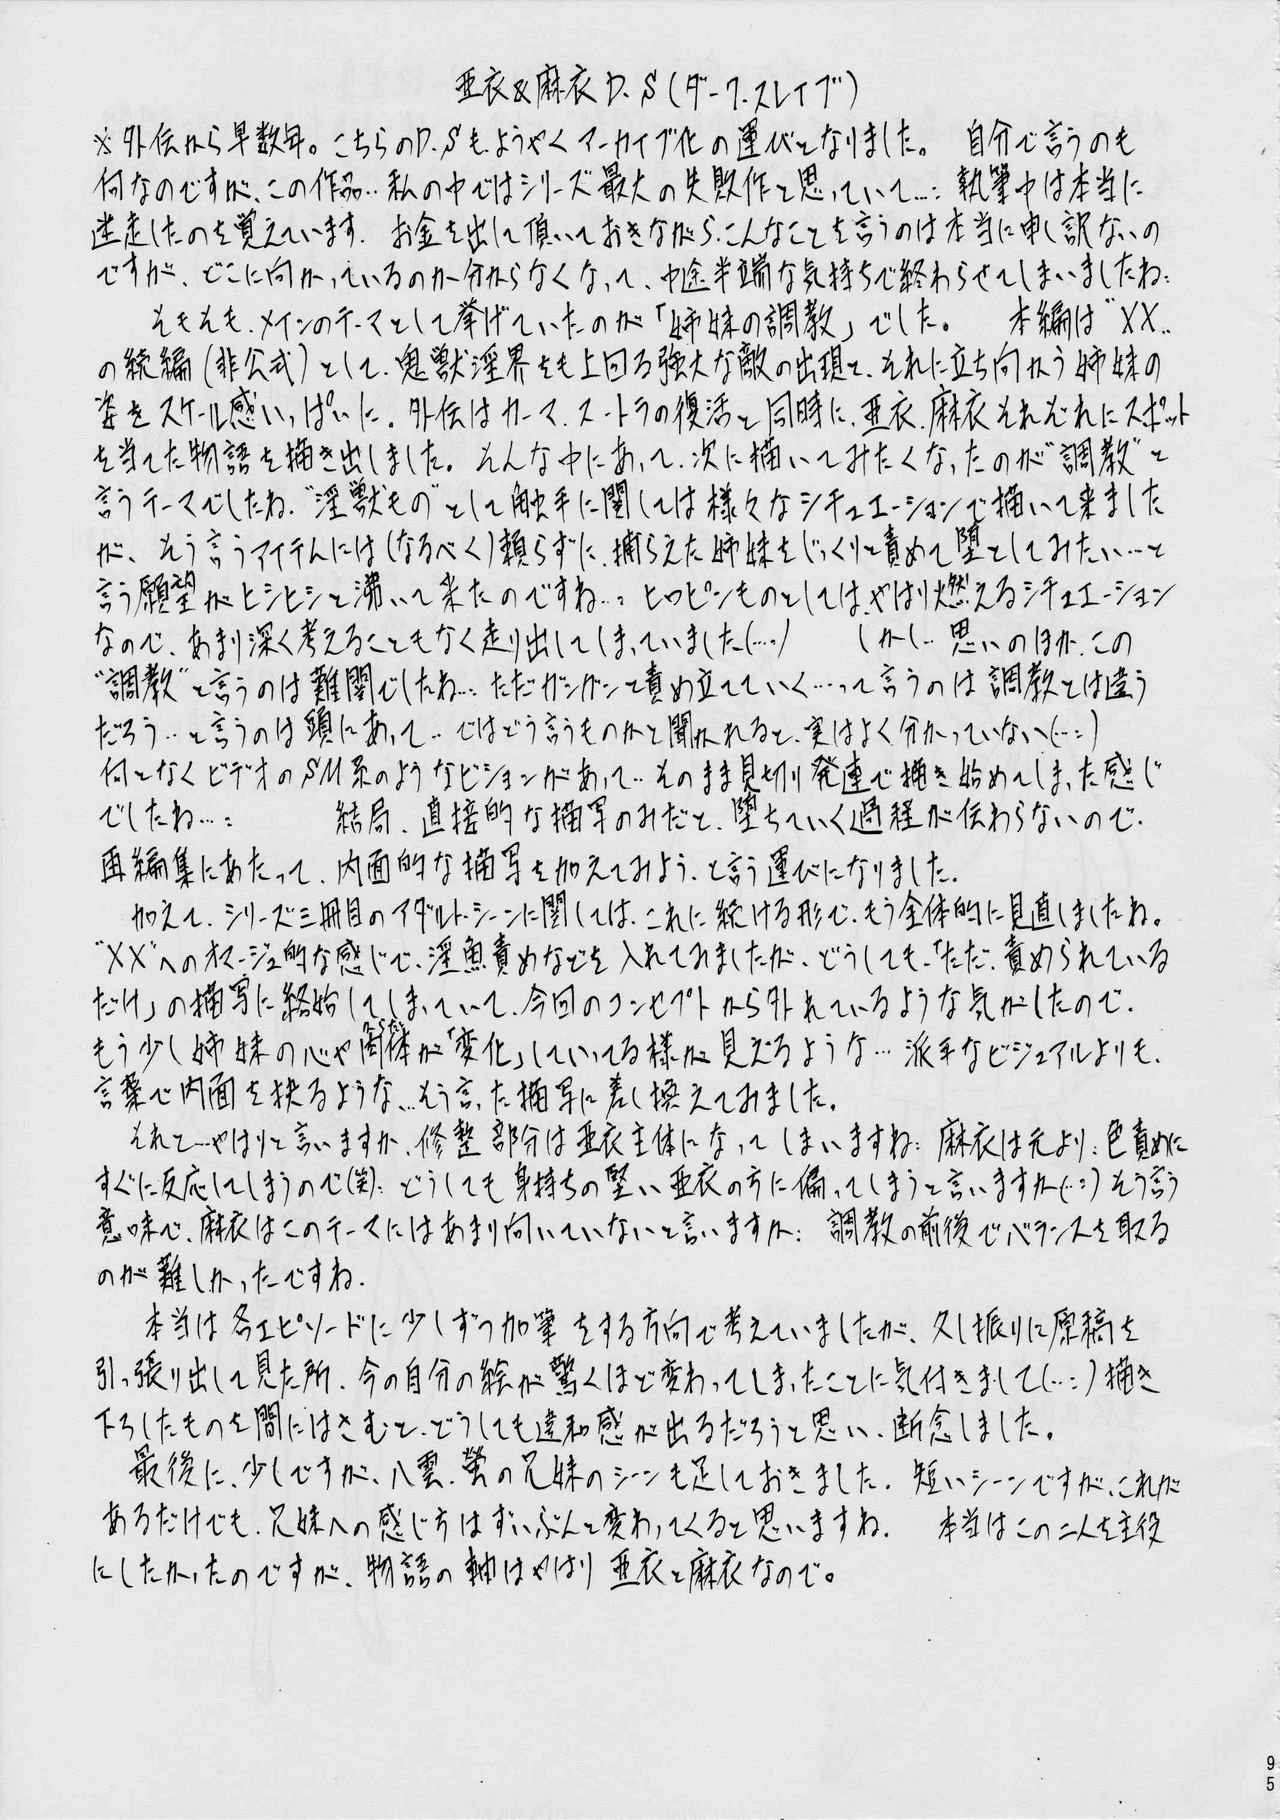 亜衣&麻衣 D.S(ダーク.スレイブ)
※外伝から早数年。こちらのD.Sも、ようやくアーカイブ化の運びとなりました。 自分で言うのも
何なのですが、この作品‥私の中ではシリーズ最大の失敗作と思っていて…: 執筆中は本当に
迷走したのを覚えています. お金を出して頂いておきながら、こんなことを言うのは本当に申し訳ないの
ですが、どこに向かっているのか分からなくなって、中途半端な気持ちで終わらせてしまいましたね:
そもそも、メインのテーマとして挙げていたのが「姉妹の調教」でした。 本編は"XX"
の続編(非公式)として、鬼獣淫界をも上回る強大な敵の出現と、それに立ち向かう姉妹の
姿をスケール感いっぱいに。外伝はカーマ.スートラの復活と同時に、亜衣.麻衣それぞれにスポット
を当てた物語を描き出しました。そんな中にあって、次に描いてみたくなったのが"調教"と
言うテーマでしたね."淫獣もの"として触手に関しては様々なシチュエーションで描いて来ました
が、そう言うアイテムには(なるべく)頼らずに、捕らえた姉妹をじっくりと責めて堕としてみたい…と
言う願望がヒシヒシと沸いて来たのですね…: ヒロピンものとしては、やはり燃えるシチュエーション
なので、あまり深く考えることもなく走り出してしまっていました(…:) しかし‥思いのほか、この
"調教"と言うのは難関でしたね…: ただガンガンと責め立てていく…って言うのは調教とは違う
だろう‥と言うのは頭にあって‥ではどう言うものかと聞かれると、実はよく分かっていない(…:)
何となくビデオのSM系のようなビジョンがあって‥そのまま見切り発進で描き始めてしまった感じ
でしたね…: 結局、直接的な描写のみだと、堕ちていく過程が伝わらないので、
再編集にあたって、内面的な描写を加えてみよう、と言う運びになりました.
加えて、シリーズ三冊目のアダルト.シーンに関しては、これに続ける形で、もう全体的に見直しましたね。
"XX"へのオマージュ的な感じで、淫魚責めなどを入れてみましたが、どうしても、「ただ、責められている
だけ」の描写に終始してしまっていて、今回のコンセプトから外れているような気がしたので、
もう少し姉妹の心や肉体が「変化」していってる様が見えるような… 派手なビジュアルよりも、
言葉で内面を抉るような、…そう言った描写に差し換えてみました。
それと…やはりと言いますか、修整部分は亜衣主体になってしまいますね: 麻衣は元より: 色責めに
すぐに反応してしまうので(笑): どうしても身持ちの堅い亜衣の方に偏ってしまうと言いますか(…:) そう言う
意味で、麻衣はこのテーマにはあまり向いていないと言いますか: 調教の前後でバランスを取る
のが難しかったですね.
本当は各エピソードに少しずつ加筆をする方向で考えていましたが、久し振りに原稿を
引っ張り出して見た所、今の自分の絵が驚くほど変わってしまったことに気付きまして(…:) 描き
下ろしたものを間にはさむと、どうしても違和感が出るだろうと思い、断念しました。
最後に、少しですが、八雲.蛍の兄妹のシーンも足しておきました. 短いシーンですが、これが
あるだけでも、兄妹への感じ方はずいぶんと変わってくると思いますね. 本当はこの二人を主役
にしたかったのですが、物語の軸はやはり亜衣と麻衣なので。
95